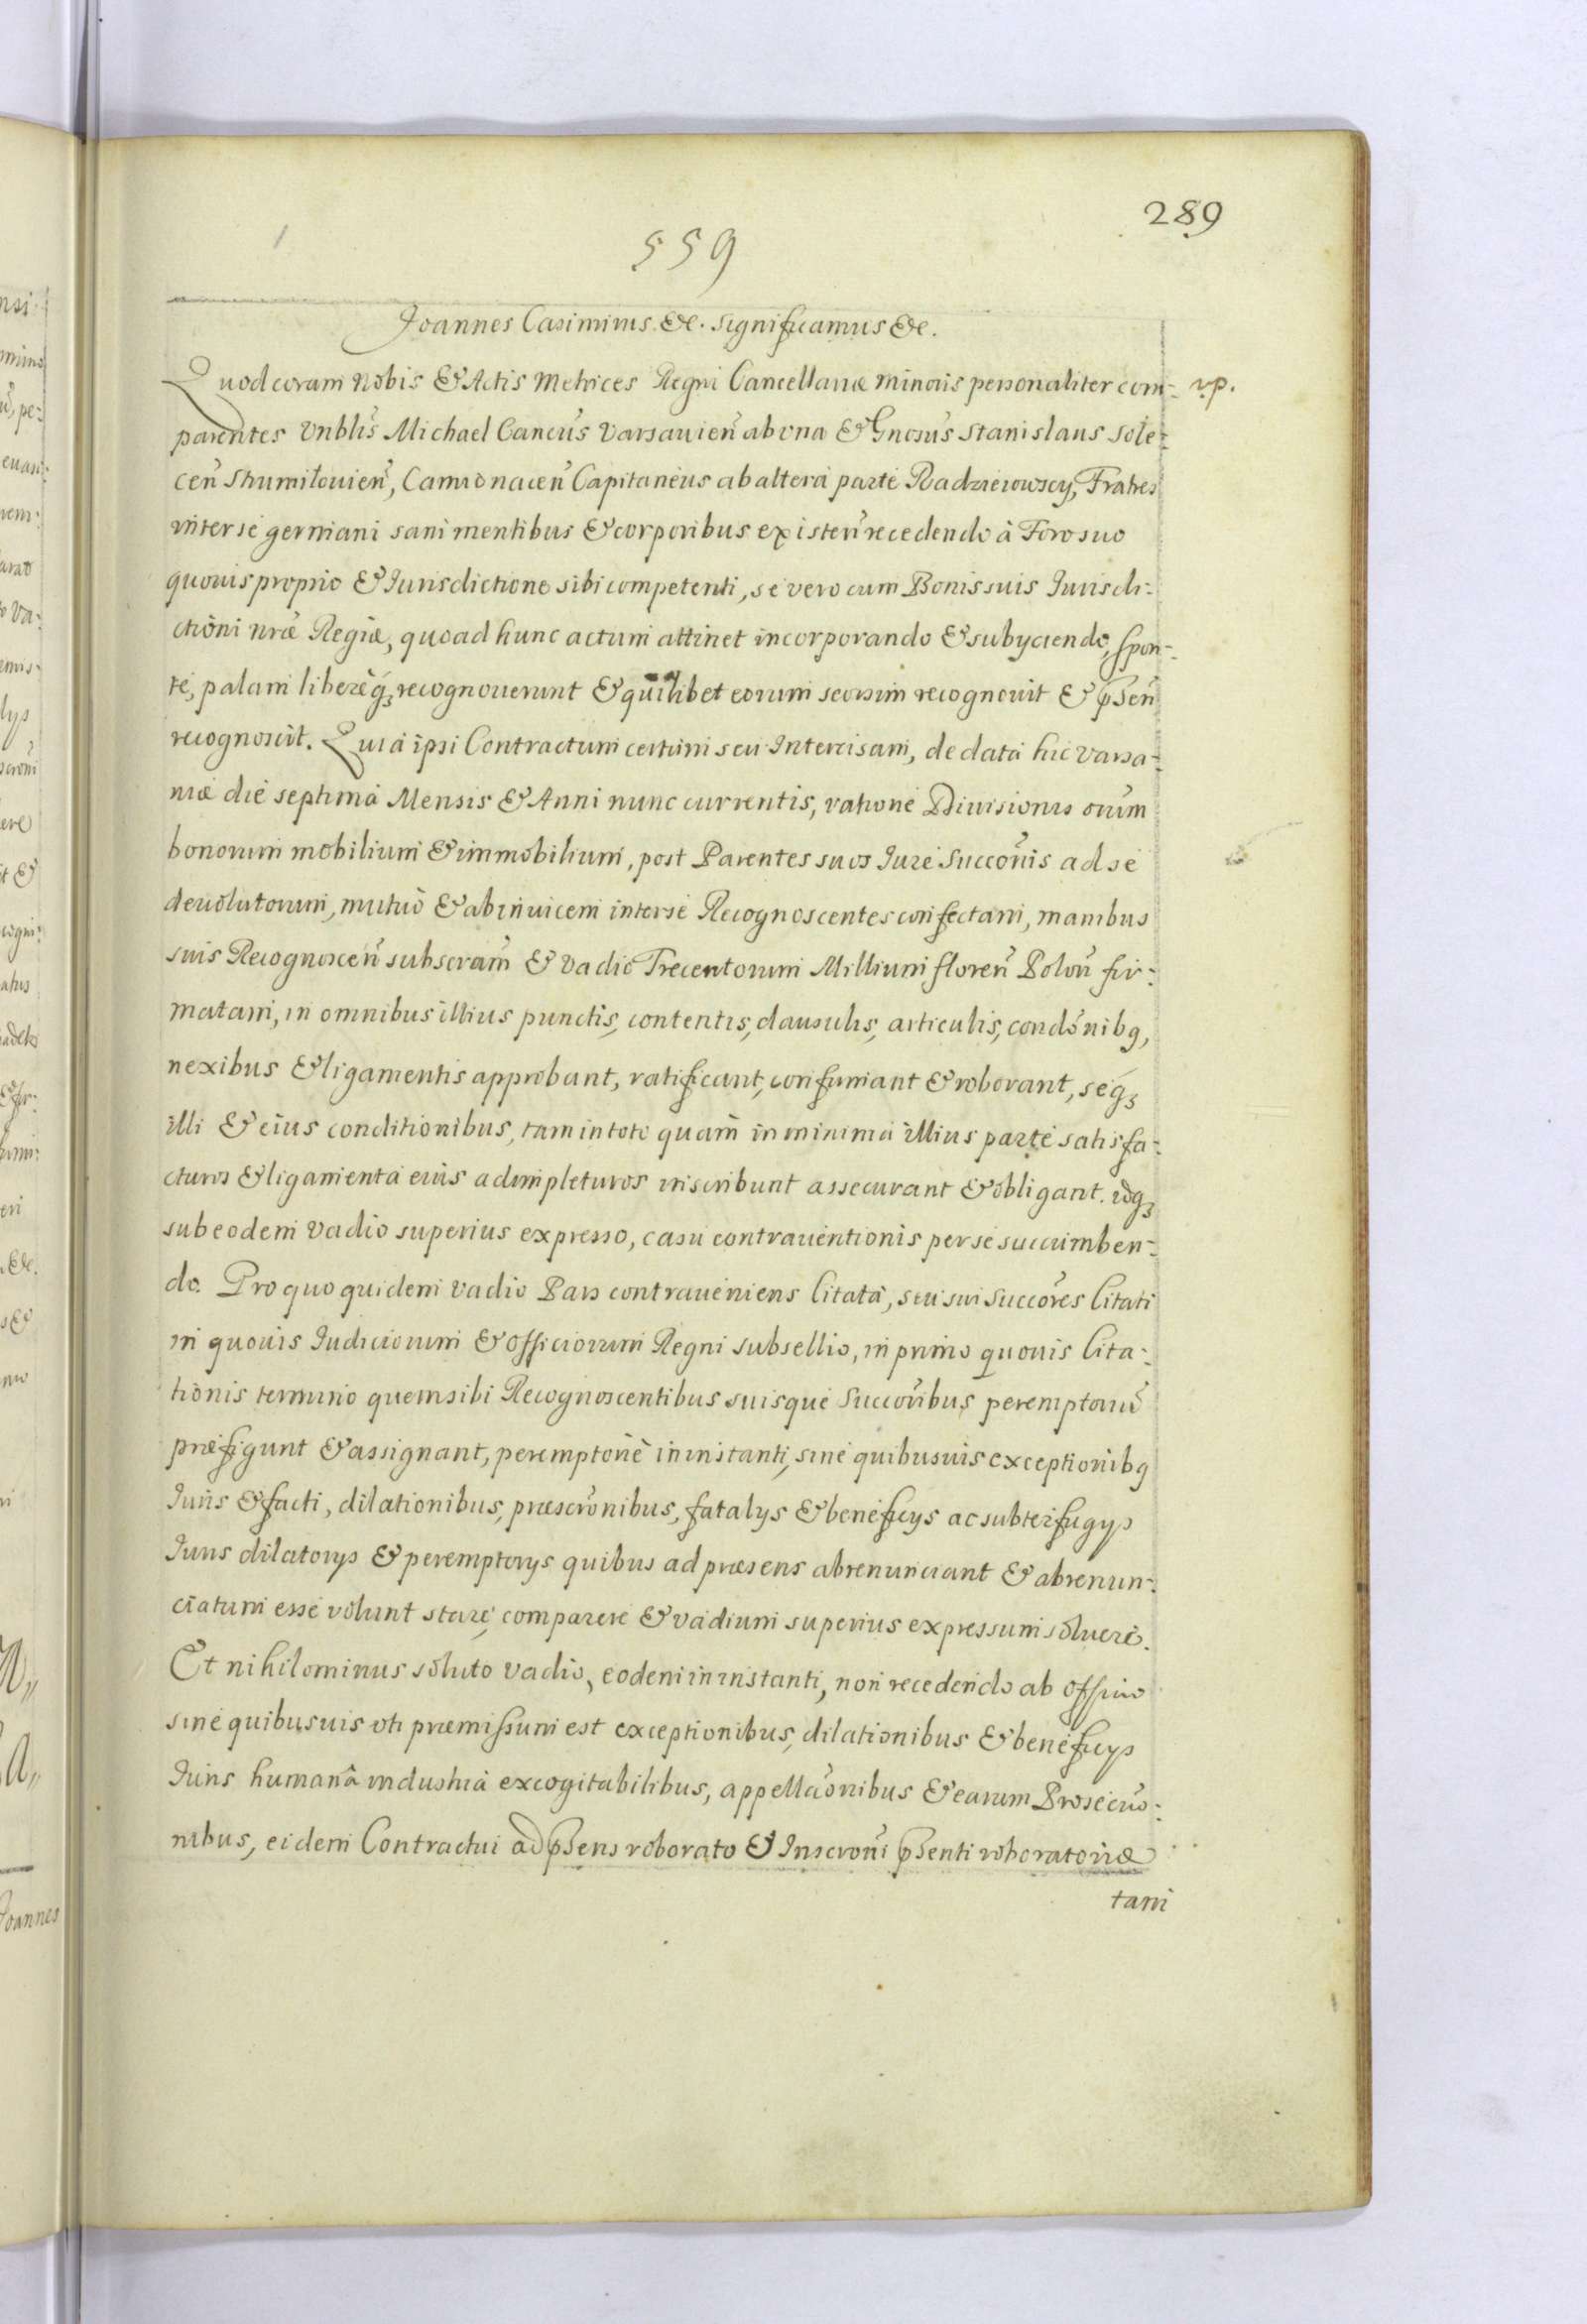 289
559
Joannes Casimirus &c. significamus &c.
Quod coram Nobis & Actis Metrices Regni Cancellariæ minoris personaliter com-: vp.
parentes Vnblis Michael Cancus Varsavien ab vna & Gnosus Stanislaus Sole-:
cen Strumilovien, Camionacen Capitaneus ab altera parte Radzieiowscy, Fratres
inter se germani sani mentibus & corporibus existen recedendo à Foro suo
quovis proprio & Jurisdictione sibi competenti, se vero cum Bonis suis Jurisdi-:
ctioni nræ Regiæ, quoad hunc actum attinet incorporando & subyciendo, spon-:
te, palam libereq; recognoverunt & quilibet eorum seorsim recognovit & psen
recognoscit. Quia ipsi Contractum certum seu Intercisam, de data hic Varsa-:
viæ die septima Mensis & Anni nunc currentis, ratione Divisionis oium
bonorum mobilium & immobilium, post Parentes suos Jure Succonis ad se
devolutorum, mutuò & abinvicem inter se Recognoscentes confectam, manibus
suis Recognoscen subscram & vadio Trecentorum Millium floren Polon fir-:
matam, in omnibus illius punctis, contentis, clausulis, articulis, condonibq,
nexibus & ligamentis approbant, ratificant, confirmant & roborant, seq;
illi & eius conditionibus, tam in toto quam in minima illius parte satisfa-:
cturos & ligamenta eius adimpleturos inscribunt assecurant & obligant. idq;
sub eodem vadio superius expresso, casu contraventionis per se succumben-:
do. Pro quo quidem vadio Pars contraveniens citata, seu sui Succores citati
in quovis Judiciorum & officiorum Regni subsellio, in primo quovis Cita-:
tionis termino quem sibi Recognoscentibus suisque Succoribus peremptoriu
præfigunt & assignant, peremptoriè in instanti, sine quibusvis exceptionibq
Juris & facti, dilationibus, præscronibus, fatalys & beneficys ac subterfugys
Juris dilatorys & peremptorys quibus ad præsens abrenunciant & abrenun-:
ciatum esse volunt stare, comparere & vadium superius expressum solvere.
Et nihilominus soluto vadio, eodem in instanti, non recedendo ab officio
sine quibusvis vti præmissum est exceptionibus, dilationibus & beneficys
Juris humanâ industriâ excogitabilibus, appellaonibus & earum Prosecuo-:
nibus, eidem Contractui ad psens roborato & Inscroni psenti roboratoriæ
tam